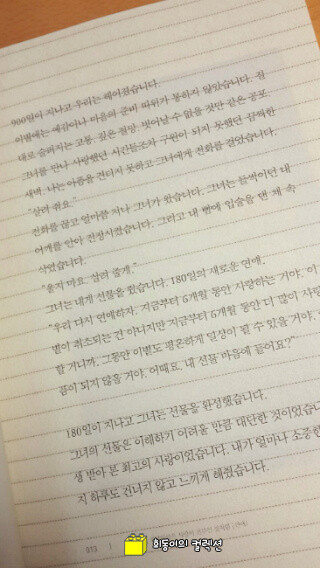 900일이 지나고 우리는 헤어졌습니다.
이별에는 예감이나 마음의 준비 따위가 통하지 않았습니다. 심
대로 슬퍼지는 고통. 깊은 절망. 벗어날 수 없을 것만 같은 공포.
그녀를 만나 사랑했던 시간들조차 구원이 되지 못했던 끔찍한
새벽. 나는 아픔을 견디지 못하고 그녀에게 전화를 걸었습니다.
"살려 줘요."
전화를 끊고 얼마쯤 지나 그녀가 왔습니다. 그녀는 들썩이던 내
어깨를 안아 진정시켰습니다. 그리고 내 뺨에 입술을 댄 채 속
삭였습니다.
"울지 마요. 살려 줄게."
그녀는 내게 선물을 줬습니다. 180일의 새로운 연애.
"우리 다시 연애하자. 지금부터 6개월 동안 사랑하는 거야. 이
별이 취소되는 건 아니지만 지금부터 6개월 동안 더 많이 사랑
할 거니까. 그동안 이별도 평온하게 일상이 될 수 있을 거야.
픔이 되지 않을 거야. 어때요. 내 선물 마음에 들어요?"
180일이 지나고 그녀는 선물을 완성했습니다.
그녀의 선물은 이해하기 어려울 만큼 대단한 것이었습니
생 받아 본 최고의 사랑이었습니다. 내가 얼마나 소중한
지 하루도 건너지 않고 느끼게 해줬습니다.
313
회동이의 컬렉션